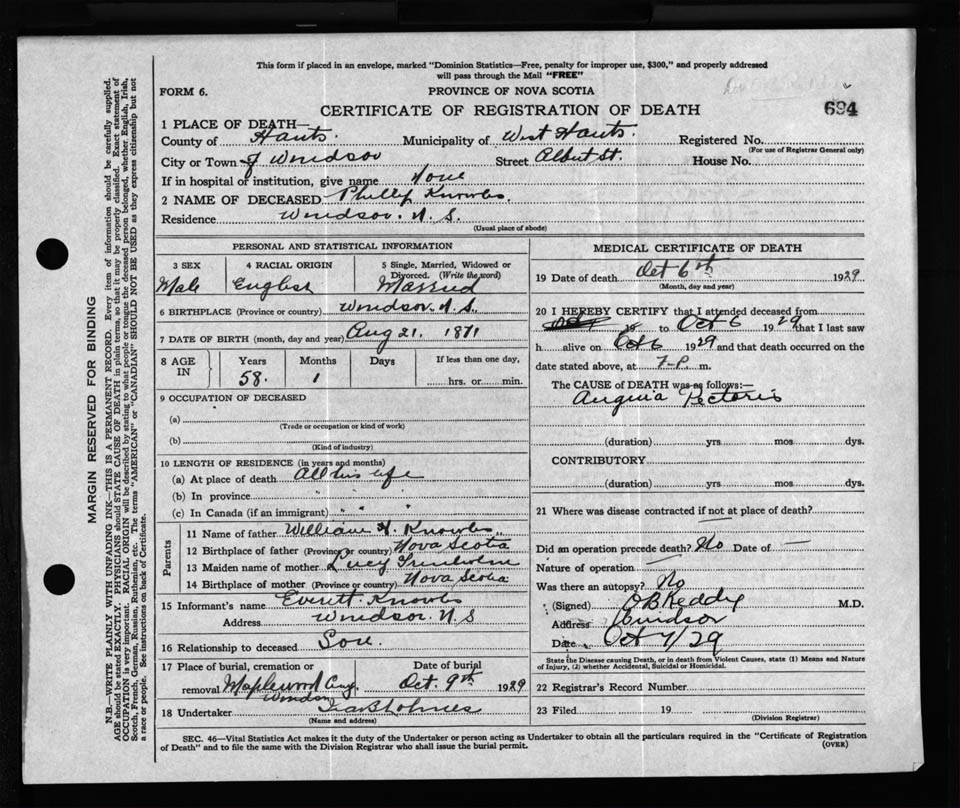 This form if placed in an envelope, marked "Dominion Statistics—Free, penalty for improper use, $300," and properly addressed
will pass through the Mail "FREE"
FORM 6.
PROVINCE OF NOVA SCOTIA
CERTIFICATE OF REGISTRATION OF DEATH
694
1 PLACE OF DEATH—
County of Hants. Municipality of West Hants. Registered No.
(For use of Registrar General only)
City or Town of Windsor Street Albert St. House No.
If in hospital or institution, give name None
2 NAME OF DECEASED Philip Knowles.
Residence Windsor. N.S.
(Usual place of abode)
PERSONAL AND STATISTICAL INFORMATION
3 SEX 4 RACIAL ORIGIN 5 Single, Married, Widowed or Divorced. (Write the word)
Male English Married
6 BIRTHPLACE (Province or country) Windsor. N.S.
7 DATE OF BIRTH (month, day and year) Aug 21. 1871
8 AGE IN Years Months Days If less than one day,
58. 1 hrs. or min.
9 OCCUPATION OF DECEASED
(a)
(Trade or occupation or kind of work)
(b)
(Kind of industry)
10 LENGTH OF RESIDENCE (in years and months)
(a) At place of death All his life
(b) In province " " "
(c) In Canada (if an immigrant) " " "
Parents
11 Name of father William H. Knowles
12 Birthplace of father (Province or country) Nova Scotia
13 Maiden name of mother Lucy
14 Birthplace of mother (Province or country) Nova Scotia
15 Informant's name Everett Knowles
Address Windsor N.S
16 Relationship to deceased Son.
17 Place of burial, cremation or Date of burial
removal Maplewood Windsor Oct. 9th 1929
18 Undertaker
(Name and address)
MEDICAL CERTIFICATE OF DEATH
19 Date of death Oct 6th 1929
(Month, day and year)
20 I HEREBY CERTIFY that I attended deceased from
to Oct 6 1929 that I last saw
h alive on Oct 6 1929 and that death occurred on the
date stated above, at 7-P. m.
The CAUSE OF DEATH was as follows:—
Angina Pectoris
(duration) yrs mos dys.
CONTRIBUTORY
(duration) yrs mos dys.
21 Where was disease contracted if not at place of death?
Did an operation precede death? No Date of —
Nature of operation
Was there an autopsy? No
(Signed) O B Keddy M.D.
Address Windsor
Date Oct 7/29
State the Disease causing Death, or in death from Violent Causes, state (1) Means and Nature
of Injury, (2) whether Accidental, Suicidal or Homicidal.
22 Registrar's Record Number
23 Filed 19
(Division Registrar)
SEC. 46—Vital Statistics Act makes it the duty of the Undertaker or person acting as Undertaker to obtain all the particulars required in the "Certificate of Registration
of Death" and to file the same with the Division Registrar who shall issue the burial permit.
(OVER)
MARGIN RESERVED FOR BINDING
N.B.—WRITE PLAINLY WITH UNFADING INK—THIS IS A PERMANENT RECORD. Every item of information should be carefully supplied.
AGE should be stated EXACTLY. PHYSICIANS should STATE CAUSE OF DEATH in plain terms, so that it may be properly classified. Exact statement of
OCCUPATION is very important. RACIAL ORIGIN will be described by stating to what people or tongue the deceased person belonged, whether English, Irish,
Scotch, French, German, Russian, Ruthenian, etc. The terms "AMERICAN" or "CANADIAN" SHOULD NOT BE USED as they express citizenship but not
a race or people. See instructions on back of Certificate.